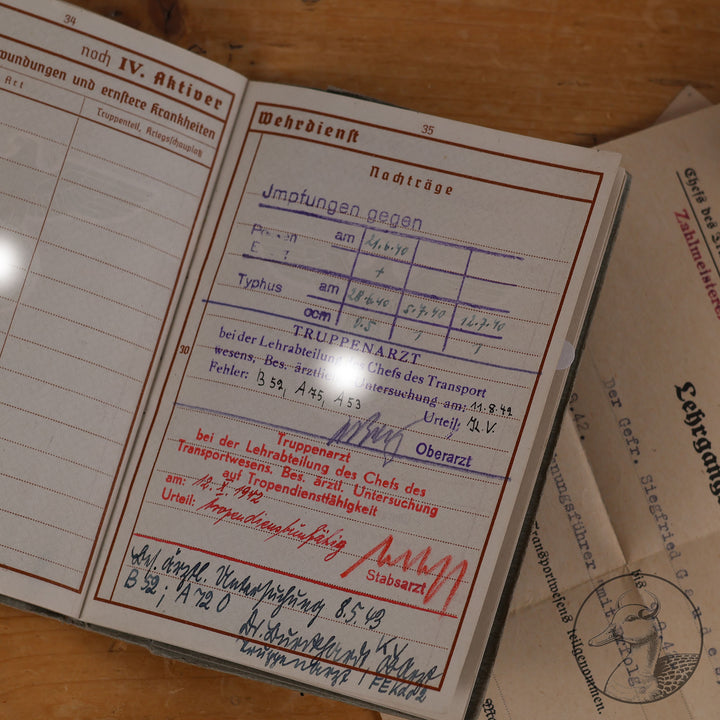 34
noch IV. Aktiver
wundungen und ernstere Krankheiten
Art
Truppenteil, Kriegsschauplatz
35
Wehrdienst
Nachträge
Jmpfungen gegen
am 21.6.40
+
Typhus am 28.6.40 5.7.40 12.7.40
ccm 0.5 1 1
TRUPPENARZT
bei der Lehrabteilung des Chefs des Transport
wesens, Bes. ärztliche Untersuchung am: 11.8.42
Fehler: B 52, A 75, A 53 Urteil: K.V.
Oberarzt
30
Truppenarzt
bei der Lehrabteilung des Chefs des
Transportwesens, Bes. ärztl. Untersuchung
auf Tropendienstfähigkeit
am: 12. X. 1942
Urteil: tropendienstfähig
Stabsarzt
Bes. ärztl. Untersuchung 8.5.43
B 52; A 72 O K V
Dr. Burkhardt
Truppenarzt
Chefs des
Zahlmeister
Lehrgang
Der Gefr. Siegfried
.42.
nungsführer
mit
Erfolg
Transportwesens teilgenommen.